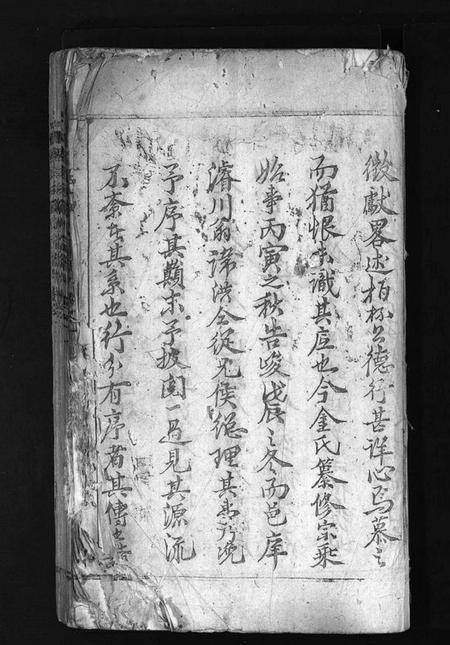 徵獻畧述柏林公德行甚詳心焉慕之
而猶恨未識其庐也今金氏纂修宗乘
始事丙寅之秋告竣戊辰之冬而邑庠
濬川翁諱洪仝從兄侯總理其事
予序其顛末予披圖一過見其源流
不紊者其系也行分有序者其傳也